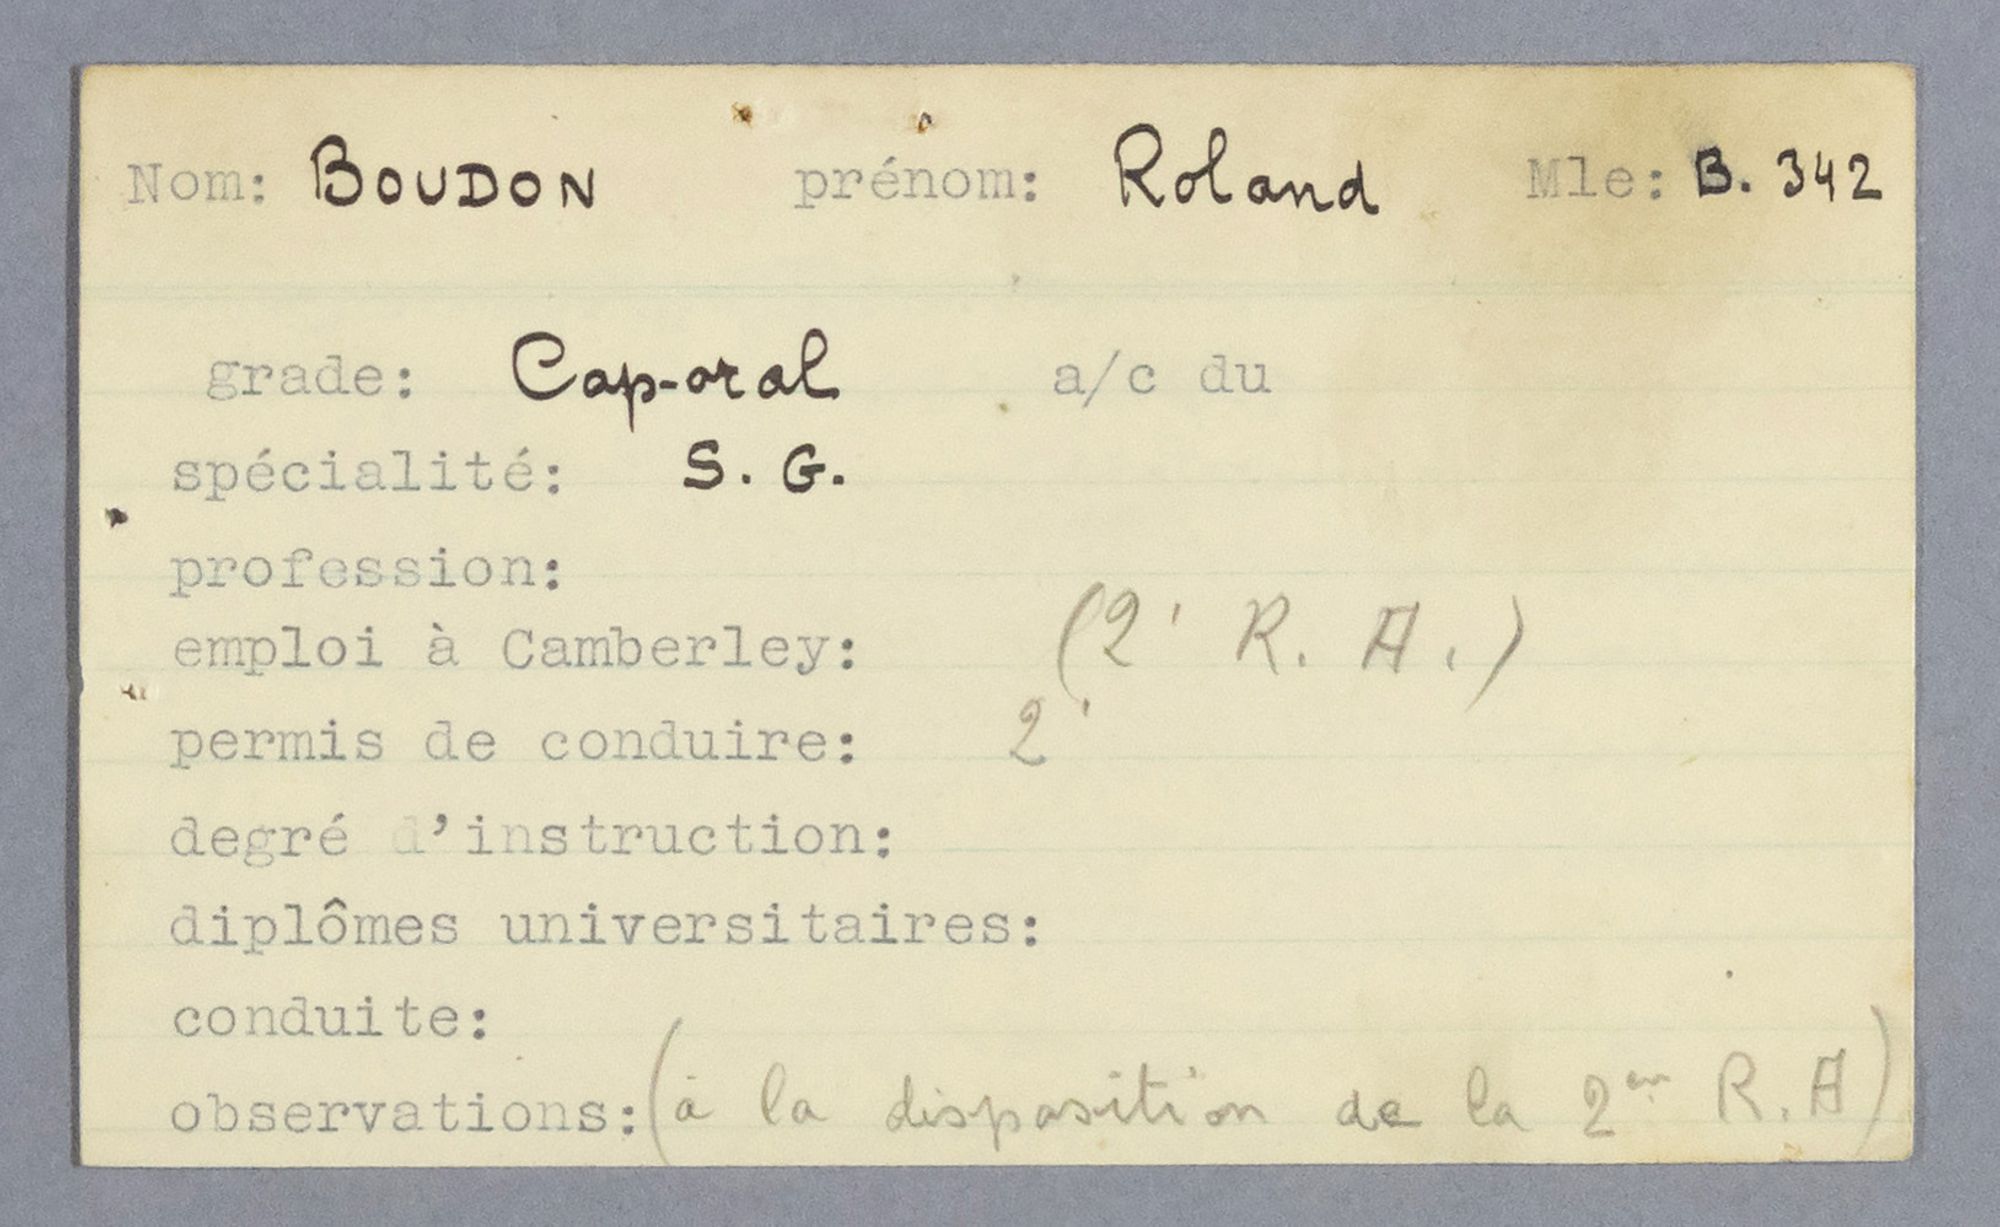 Nom: BOUDON prénom: Roland Mle: B. 342
grade: Cap-oral a/c du
spécialité: S. G.
profession:
emploi à Camberley: (2' R. A.)
permis de conduire: 2'
degré d'instruction:
diplômes universitaires:
conduite:
observations: (à la disposition de la 2em R. A)